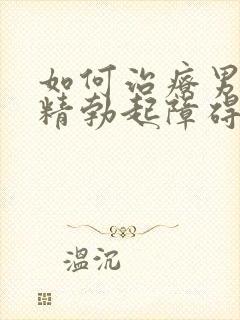 如何治疗男
精勃起障碍
温沉